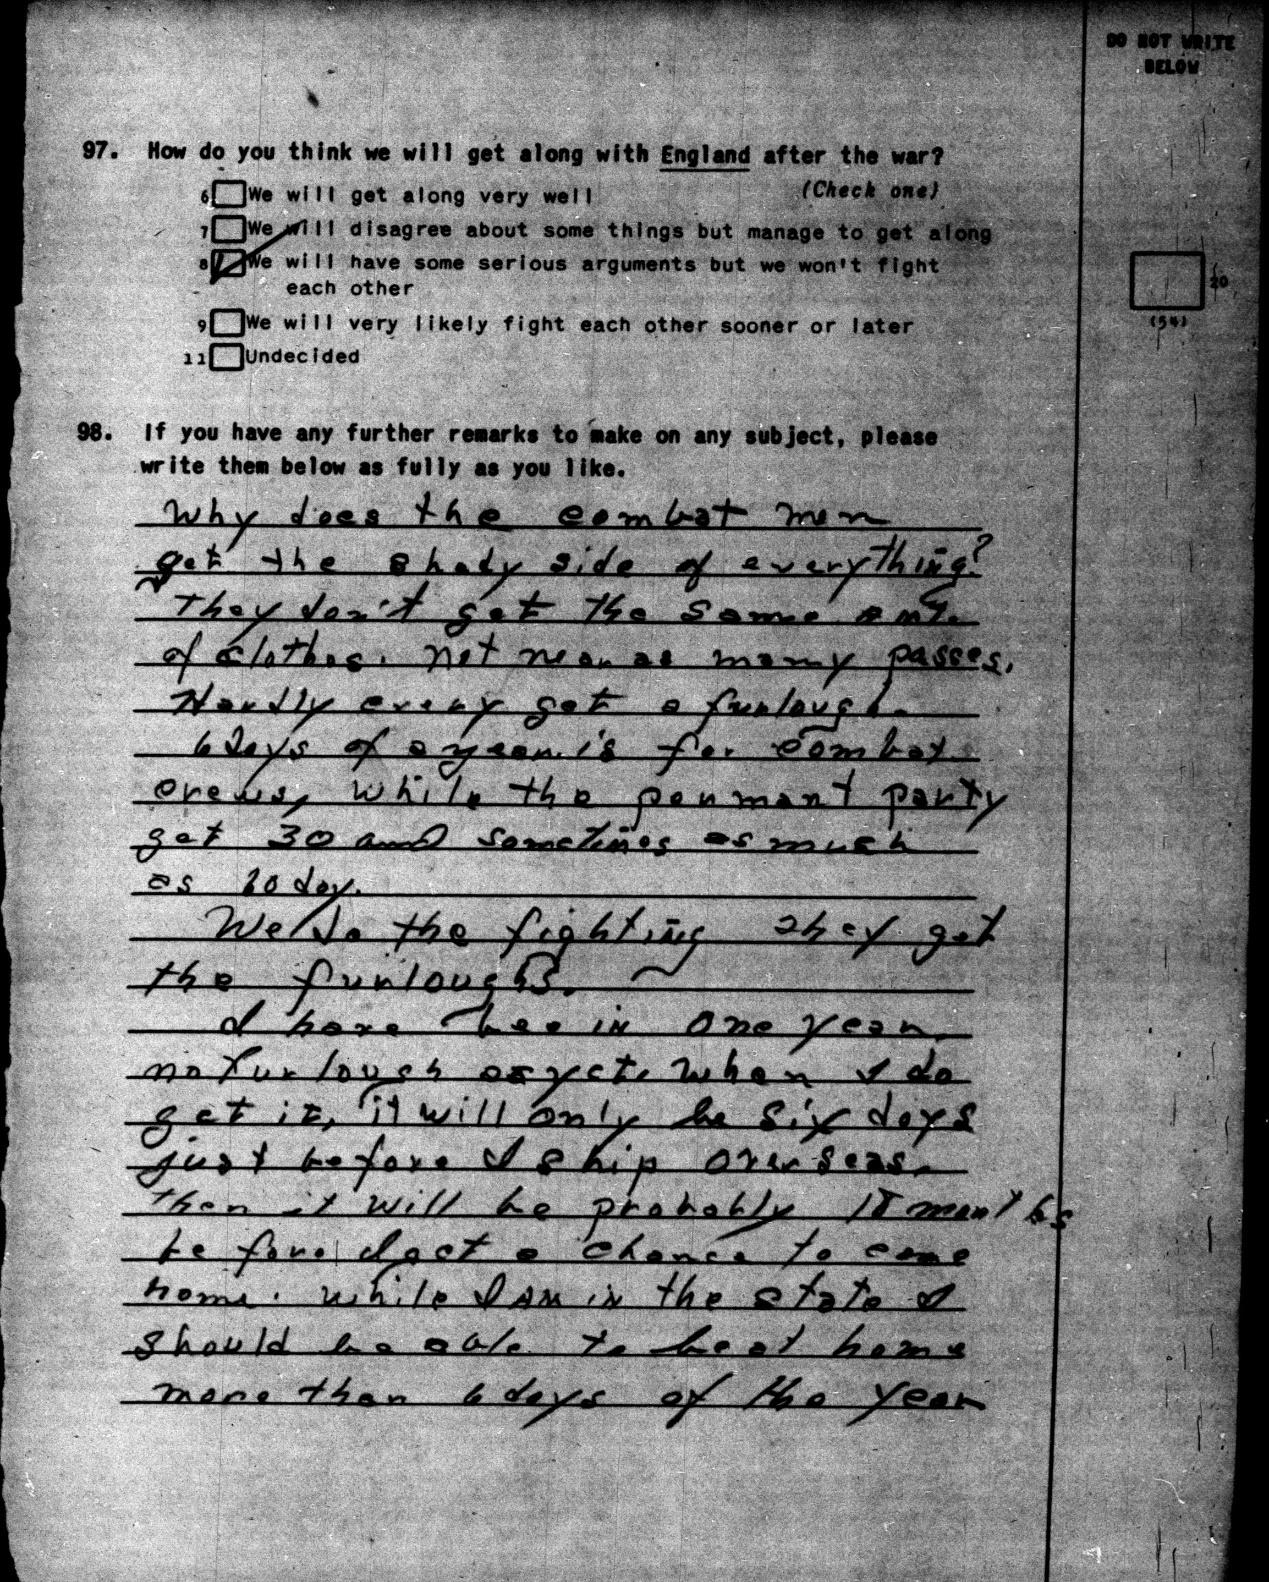 DO NOT WRITE
BELOW
97. How do you think we will get along with England after the war?
(Check one)
6 We will get along very well
7 We will disagree about some things but manage to get along
8 We will have some serious arguments but we won't fight
each other
9 We will very likely fight each other sooner or later
11 Undecided
20
(54)
98. If you have any further remarks to make on any subject, please
write them below as fully as you like.
Why does the combat men
get the shady side of everything?
They don't get the same amt.
of clothes. Not near as many passes.
Hardly every get a furlough.
6 days of a year is for combat
crews, while the penmant party
get 30 and sometimes as much
as 20 day.
We do the fighting they get
the furloughs.
I have bee in one year
no furlough as yet. When I do
get it, it will only be six days
just before I ship overseas.
then it will be probably 18 months
before I get a chance to come
home. While I am in the state I
should be able to be at home
more than 6 days of the year